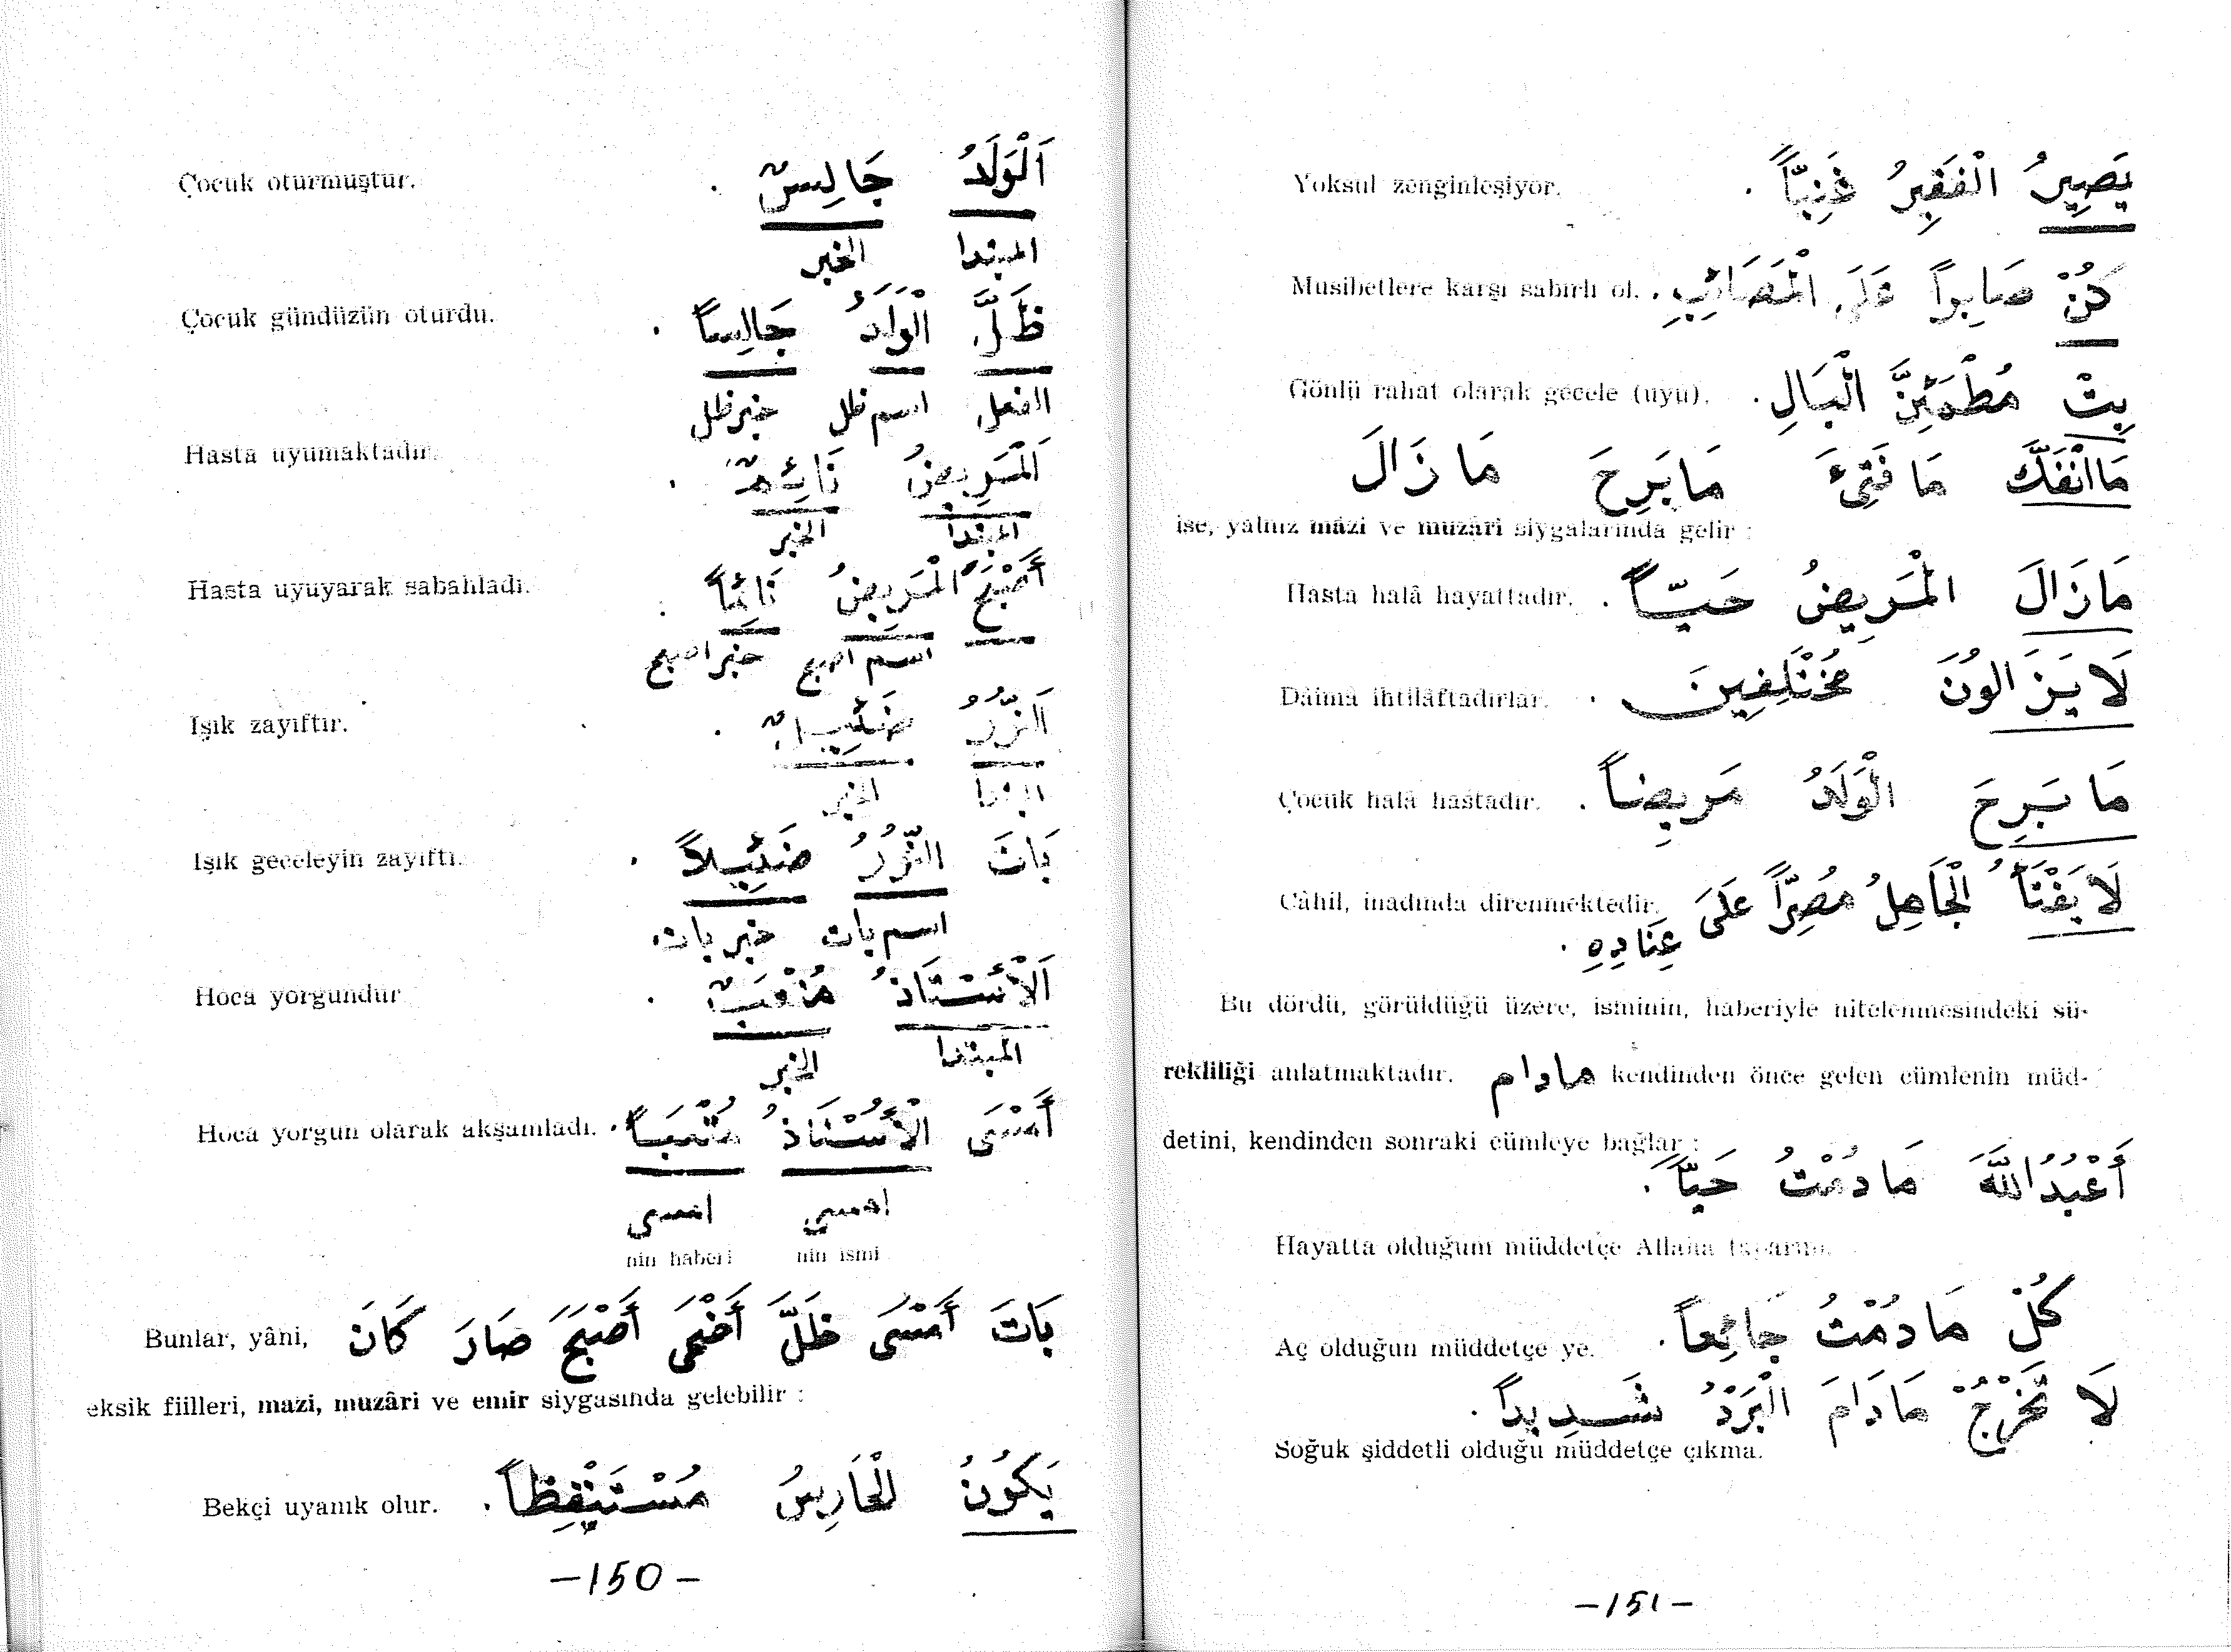 Çocuk oturmuştur. اَلْوَلَدُ جَالِسٌ .
المبتدا الخبر
Çocuk gündüzün oturdu. ظَلَّ الْوَلَدُ جَالِساً .
الفعل اسم ظل خبر ظل
Hasta uyumaktadır. اَلْمَرِيضُ نَائِمٌ .
المبتدا الخبر
Hasta uyuyarak sabahladı. أَصْبَحَ الْمَرِيضُ نَائِماً .
اسم اصبح خبر اصبح
Işık zayıftır. اَلنُّورُ ضَئِيلٌ .
المبتدا الخبر
Işık geceleyin zayıftı. بَاتَ النُّورُ ضَئِيلاً .
اسم بات خبر بات
Hoca yorgundur اَلْأُسْتَاذُ مُتْعَبٌ .
المبتدا الخبر
Hoca yorgun olarak akşamladı. أَمْسَى الْأُسْتَاذُ مُتْعَباً .
امسى امسى
nin haberi nin ismi
Bunlar, yâni, كَانَ صَارَ أَصْبَحَ أَضْحَى ظَلَّ أَمْسَى بَاتَ
eksik fiilleri, mazi, muzâri ve emir siygasında gelebilir :
Bekçi uyanık olur. يَكُونُ الْحَارِسُ مُسْتَيْقِظاً .
—150—
Yoksul zenginleşiyor. يَصِيرُ الْفَقِيرُ غَنِيّاً .
Musibetlere karşı sabırlı ol. كُنْ صَابِراً عَلَى الْمَصَائِبِ .
Gönlü rahat olarak gecele (uyu). بِتْ مُطْمَئِنَّ الْبَالِ .
مَاانْفَكَّ مَا فَتِىءَ مَا بَرِحَ مَا زَالَ
ise, yalnız mâzi ve muzâri siygalarında gelir :
Hasta halâ hayattadır. مَا زَالَ الْمَرِيضُ حَيّاً .
Dâima ihtilâftadırlar. لَا يَزَالُونَ مُخْتَلِفِينَ .
Çocuk halâ hastadır. مَا بَرِحَ الْوَلَدُ مَرِيضاً .
Câhil, inadında direnmektedir. لَا يَفْتَأُ الْجَاهِلُ مُصِرّاً عَلَى
عِنَادِهِ .
Bu dördü, görüldüğü üzere, isminin, haberiyle nitelenmesindeki sü-
rekliliği anlatmaktadır. مادام kendinden önce gelen cümlenin müd-
detini, kendinden sonraki cümleye bağlar :
أَعْبُدُ اللَّهَ مَا دُمْتُ حَيّاً .
Hayatta olduğum müddetçe Allaha taparım.
كُلْ مَا دُمْتُ جَائِعاً .
Aç olduğun müddetçe ye.
لَا تَخْرُجْ مَا دَامَ الْبَرْدُ شَدِيداً .
Soğuk şiddetli olduğu müddetçe çıkma.
—151—